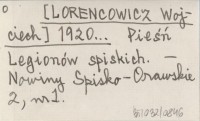 o [LORENCOWICZ Woj-
ciech] 1920... Pieśń
Legionów spiskich. —
Nowiny Spisko-Orawskie
2, nr 1.